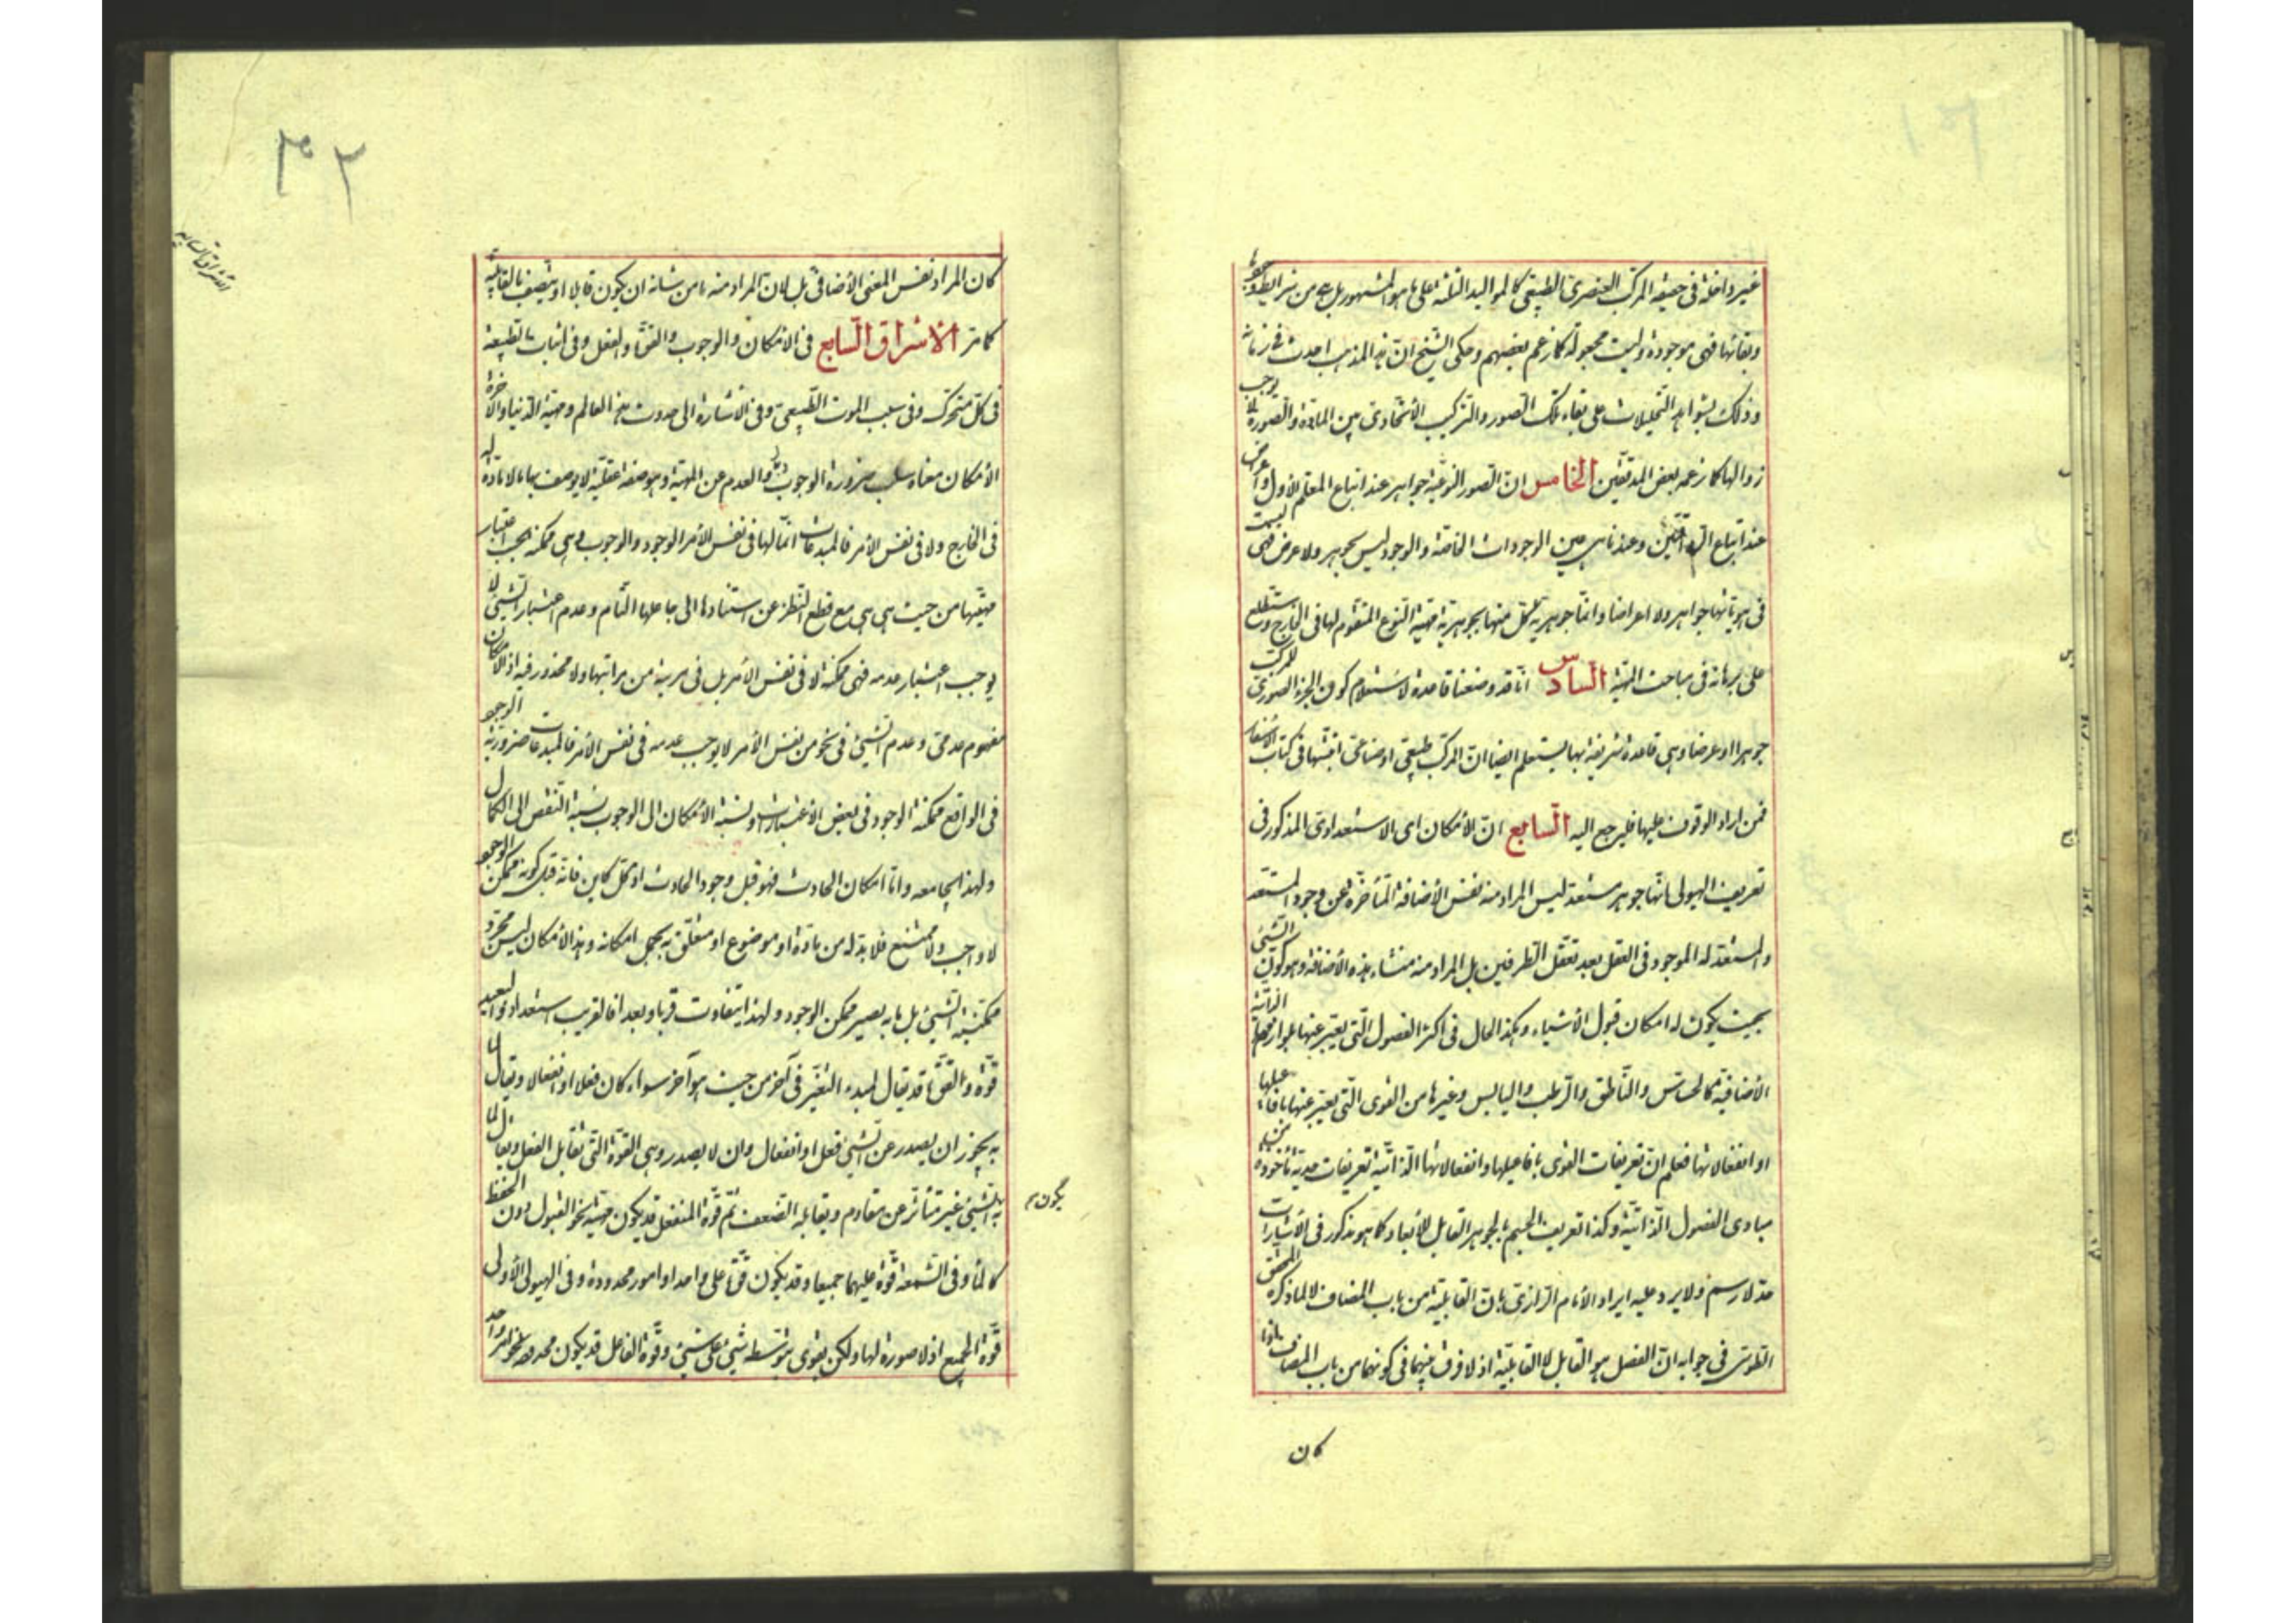 غير داخلة في حقيقة المركب العنصري الطبيعي كالمواليد الثلثة على ما هو المشهور بل هي من شرايط وجودها
وبقائها فهي موجودة وليست مجعولة كما زعم بعضهم وحكى الشيخ ان هذا المذهب احدث في زمانه
وذلك بشواهد التحليلات على بقاء تلك الصور والتركيب الاتحادي بين المادة والصورة لا يوجب
زوالها كما زعمه بعض المدققين الخامس ان الصور النوعية جواهر عند اتباع المعلم الاول واعراض
عند اتباع الرواقيين وعندنا هي عين الوجودات الخاصة والوجود ليس بجوهر ولا عرض فهي ليست
في هوياتها جواهر ولا اعراضا وانما جوهرية كل منها بجوهرية مهية النوع المتقوم لها في الخارج وستطلع
على برهانه في مباحث المهية السادس انا قد وضعنا قاعدة لاستعلام كون الجزء الصوري للمركب
جوهرا او عرضا وهي قاعدة شريفة بها يستعلم ايضا ان المركب طبيعي او صناعي اثبتها في كتاب الاسفار
فمن اراد الوقوف عليها فليرجع اليه السابع ان الامكان اي الاستعدادي المذكور في
تعريف الهيولى بانها جوهر مستعد ليس المراد منه نفس الاضافة المتأخرة عن وجود المستعد
والمستعد له الموجود في العقل بعد تعقل الطرفين بل المراد منه منشاء هذه الاضافة وهو كون الشئ
بحيث يكون له امكان قبول الاشياء وهكذا الحال في اكثر الفصول التي يعبر عنها بلوازمها الذاتية
الاضافية كالحساس والناطق والرطب واليابس وغيرها من القوى التي يعبر عنها بافاعيلها
او انفعالاتها فعلم ان تعريفات القوى بافاعيلها وانفعالاتها الذاتية تعريفات حدية مأخوذة من
مبادى الفصول الذاتية وكذا تعريف الجسم بالجوهر القابل للابعاد كما هو مذكور في الاشارات
حد لا رسم ولا يرد عليه ايراد الامام الرازي بان القابلية من باب المضاف لا لما ذكره المحقق
الطوسي في جوابه ان الفصل هو القابل لا القابلية اذ لا فرق بينهما في كونهما من باب المضاف اذا
كان
٣٢
الاشراق السابع
كان المراد نفس المعنى الاضافي بل لان المراد منه ما من شانه ان يكون قابلا او يتصف بالقابلية
كما مر الاشراق السابع في الامكان والوجوب والقوة والفعل وفي اثبات الطبيعة
في كل متحرك وفي سبب الموت الطبيعي وفي الاشارة الى حدوث هذا العالم ومهية الدنيا والاخرة
الامكان معناه سلب ضرورة الوجوب والعدم عن المهية وهو صفة عقلية لا يوصف بها ما لا مادة له
في الخارج ولا في نفس الامر فالمبدعات انما لها في نفس الامر الوجود والوجوب وهي ممكنة بحسب اعتبار
مهيتها من حيث هي هي مع قطع النظر عن استنادها الى جاعلها التام وعدم اعتبار الشئ لا
يوجب اعتبار عدمه فهي ممكنة لا في نفس الامر بل في مرتبة من مراتبها ولا محذور فيه اذ الامكان
مفهوم عدمي وعدم الشئ في نحو من نفس الامر لا يوجب عدمه في نفس الامر فالمبدعات ضرورية الوجود
في الواقع ممكنة الوجود في بعض الاعتبارات ونسبة الامكان الى الوجوب نسبة النقص الى الكمال
ولهذا يجامعه واما امكان الحادث فهو قبل وجود الحادث اذ كل كاين فانه قبل كونه ممكن الوجود
لا واجب ولا ممتنع فلا بد له من مادة او موضوع او متعلق به يحمل امكانه وهذا الامكان ليس مجرد
ممكنية الشئ بل ما به يصير ممكن الوجود ولهذا يتفاوت قربا وبعدا فالقريب استعداد والبعيد
قوة والقوة قد يقال لمبدء التغير في آخر من حيث هو آخر سواء كان فعلا او انفعالا ويقال لما
به يجوز ان يصدر عن الشئ فعل او انفعال وان لا يصدر وهي القوة التي تقابل الفعل ويقال لما
يكون
به الشئ غير متأثر عن مقاوم ويقابله الضعف ثم قوة المنفعل قد يكون مهيئة نحو القبول دون الحفظ
كالماء وفي الشمعة قوة عليهما جميعا وقد يكون قوة على واحد او امور محدودة وفي الهيولى الاولى
قوة الجميع اذ لا صورة لها ولكن يقوى بتوسط شئ على شئ وقوة الفاعل قد يكون محدودة نحو امر واحد